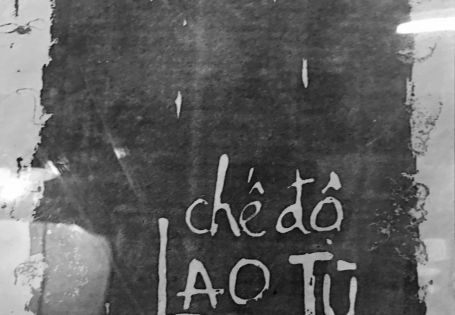 chế độ
LAO TÙ